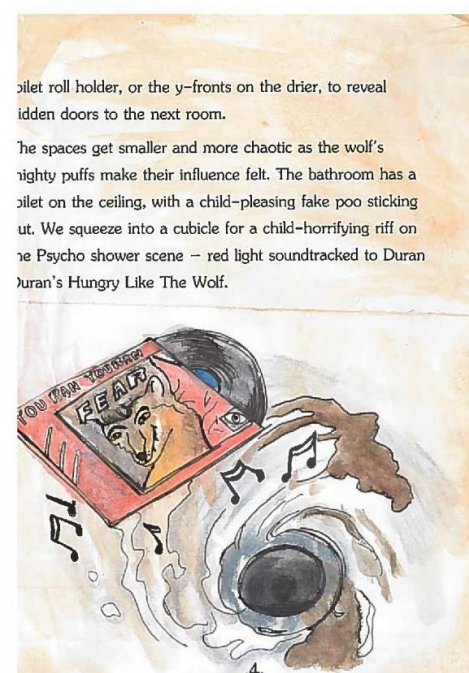 oilet roll holder, or the y-fronts on the drier, to reveal
idden doors to the next room.
he spaces get smaller and more chaotic as the wolf's
nighty puffs make their influence felt. The bathroom has a
oilet on the ceiling, with a child-pleasing fake poo sticking
ut. We squeeze into a cubicle for a child-horrifying riff on
he Psycho shower scene – red light soundtracked to Duran
Duran's Hungry Like The Wolf.
YOU RAN YOURAN
FEAR
4.